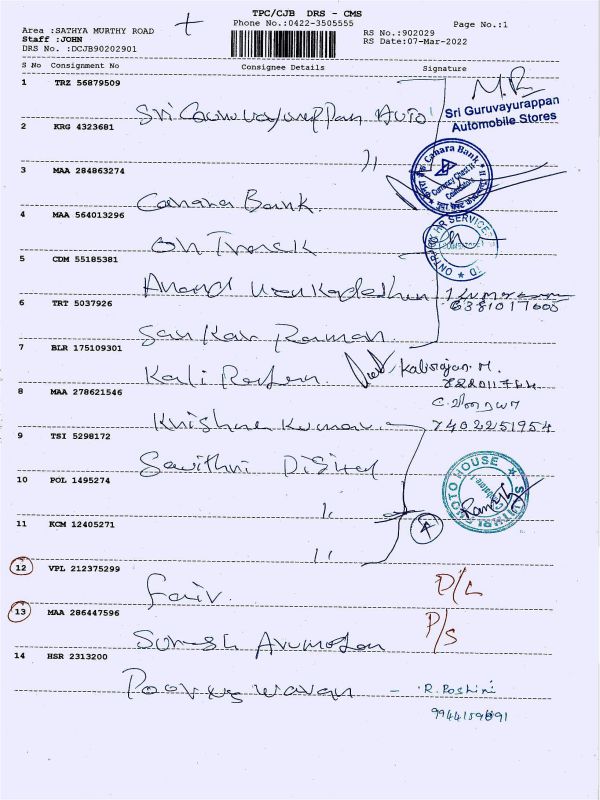 TPC/CJB DRS - CMS
Phone No.:0422-3505555
Page No.:1
Area :SATHYA MURTHY ROAD
Staff :JOHN
DRS No. :DCJB90202901
RS No.:902029
RS Date:07-Mar-2022
S No Consignment No Consignee Details Signature
1 TRZ 56879509
Sri Guruvayurappan Auto
Sri Guruvayurappan
Automobile Stores
2 KRG 4323681
11
3 MAA 284863274
Canara Bank
Canara Bank
4 MAA 564013296
On Track
5 CDM 55185381
Anand Venkadeshan
6 TRT 5037926
Sankar Raman
7 BLR 175109301
Kali Rajan
Kalirajan. M.
8 MAA 278621546
Krishna Kumar
7402251954
9 TSI 5298172
Savithri Digital
SAVITHRI PHOTO HOUSE
10 POL 1495274
11
11 KCM 12405271
11
12 VPL 212375299
D/L
13 MAA 286447596
P/S
14 HSR 2313200
R. Roshini